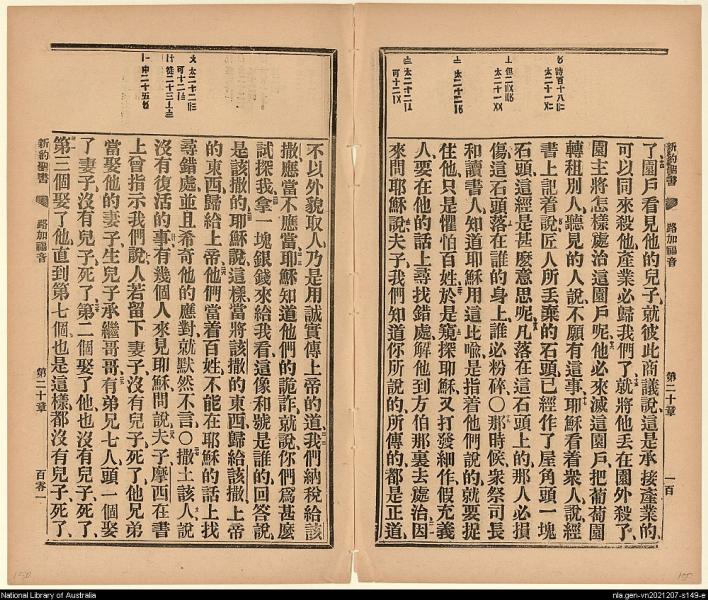 新約聖書 路加福音 第二十章 一百
了園戶看見他的兒子就彼此商議說這是承接產業的
可以同來殺他產業必歸我們了就將他丟在園外殺了
園主將怎樣處治這園戶呢他必來滅這園戶把葡萄園
轉租別人聽見的人說不願有這事耶穌看着衆人說經
書上記着說匠人所丟棄的石頭已經作了屋角頭一塊
石頭這經是甚麼意思呢凡落在這石頭上的那人必損
傷這石頭落在誰的身上誰必粉碎〇那時候衆祭司長
和讀書人知道耶穌用這比喻是指着他們說的就要捉
住他只是懼怕百姓於是窺探耶穌又打發細作假充義
人要在他的話上尋找錯處解他到方伯那裏去處治因
來問耶穌說夫子我們知道你所說的所傳的都是正道
不以外貌取人乃是用誠實傳上帝的道我們納稅給該
撒應當不應當耶穌知道他們的詭詐就說你們爲甚麼
試探我拿一塊銀錢來給我看這像和號是誰的回答說
是該撒的耶穌說這樣當將該撒的東西歸給該撒上帝
的東西歸給上帝他們當着百姓不能在耶穌的話上找
尋錯處並且希奇他的應對就默然不言〇撒土該人說
沒有復活的事有幾個人來見耶穌問說夫子摩西在書
上曾指示我們說人若留下妻子沒有兒子死了他兄弟
當娶他的妻子生兒子承繼哥哥有弟兄七人頭一個娶
了妻子沒有兒子死了第二個娶了他也沒有兒子死了
第三個娶了他直到第七個也是這樣都沒有兒子死了
新約聖書 路加福音 第二十章 百零一
National Library of Australia
nla.gen-vn2021207-s149-e